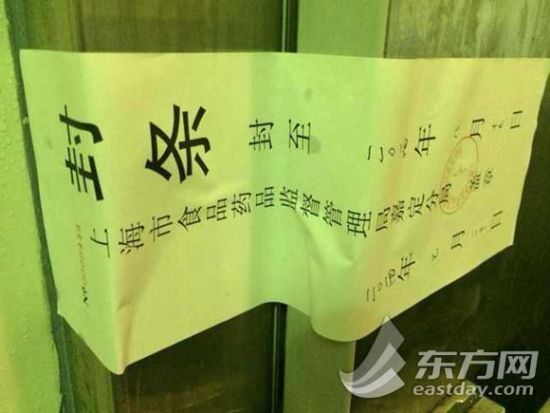 封条
封至 二〇一四年八月 日
上海市食品药品监督管理局嘉定分局 盖章
二〇一四年七月二十日
东方网
eastday.com